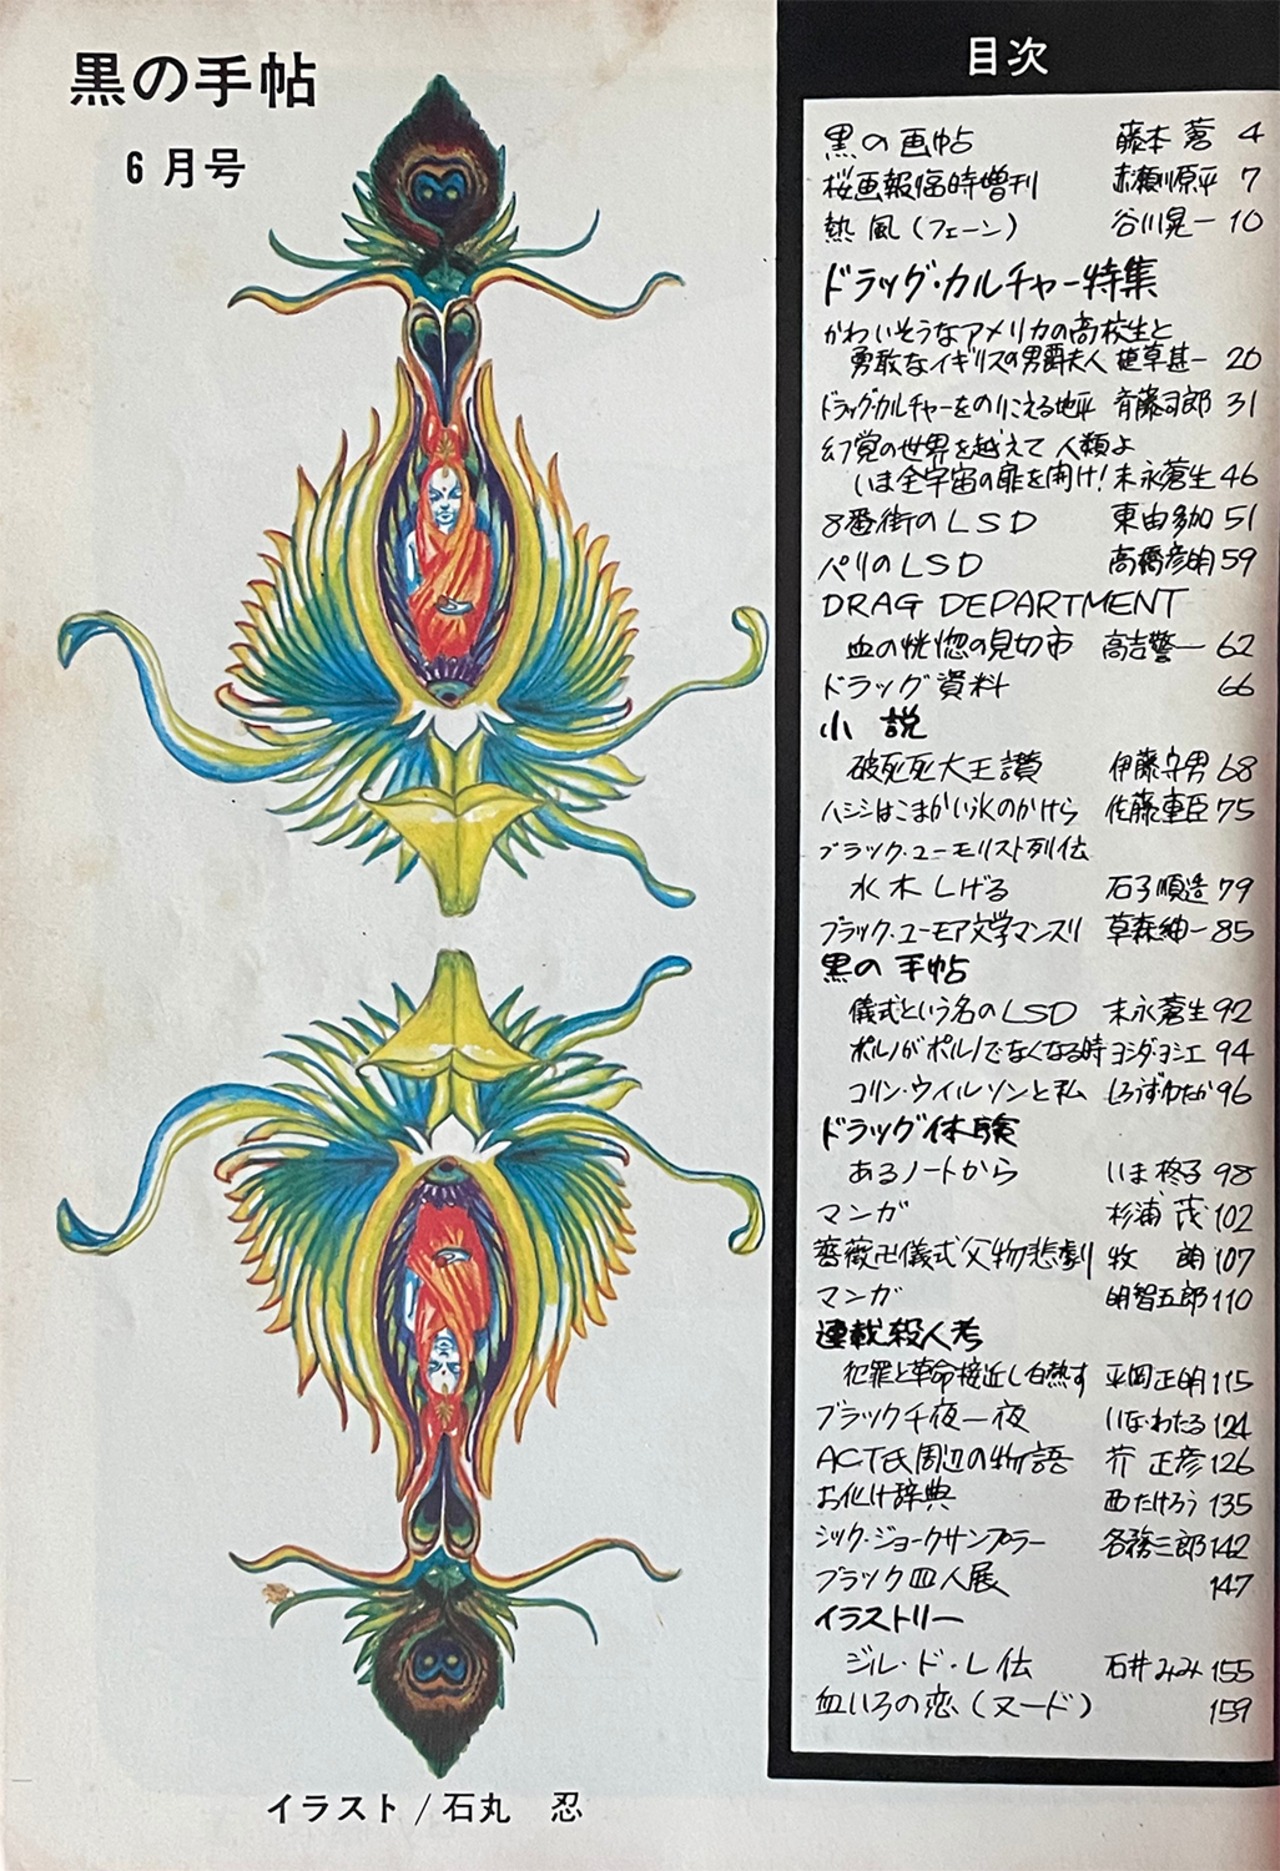 黒の手帖
6月号
イラスト/石丸 忍
目次
黒の画帖 藤本 蒼 4
桜画報臨時増刊 赤瀬川原平 7
熱風(フェーン) 谷川晃一 10
ドラッグ・カルチャー特集
かわいそうなアメリカの高校生と
勇敢なイギリスの男爵夫人 植草甚一 20
ドラッグ・カルチャーをのりこえる地平 斉藤司郎 31
幻覚の世界を越えて 人類よ
いま全宇宙の扉を開け! 末永蒼生 46
8番街のLSD 東由多加 51
パリのLSD 高橋彦明 59
DRAG DEPARTMENT
血の恍惚の見切市 高吉警一 62
ドラッグ資料 66
小説
破死死大王讃 伊藤守男 68
ハシシはこまかい氷のかけら 佐藤重臣 75
ブラック・ユーモリスト列伝
水木しげる 石子順造 79
ブラック・ユーモア文学マンスリ 草森紳一 85
黒の手帖
儀式という名のLSD 末永蒼生 92
ポルノがポルノでなくなる時 ヨシダ・ヨシエ 94
コリン・ウィルソンと私 しろうずゆたか 96
ドラッグ体験
あるノートから いま柊子 98
マンガ 杉浦 茂 102
薔薇卍儀式父物悲劇 牧 朗 107
マンガ 明智五郎 110
連載殺人考
犯罪と革命接近し白熱す 平岡正明 115
ブラック千夜一夜 いな・わたる 124
ACT氏周辺の物語 芥 正彦 126
お化け辞典 西たけろう 135
シック・ジョークサンプラー 各務三郎 142
ブラック四人展 147
イラストリー
ジル・ド・レ伝 石井みみ 155
血いろの恋(ヌード) 159